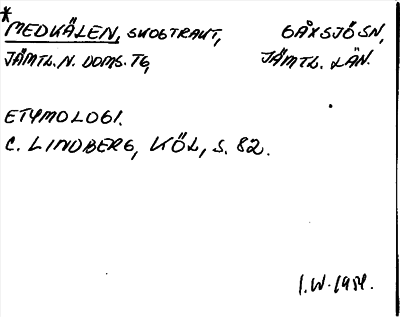 *
MEDKÄLEN, SKOGTRAKT, GÅXSJÖ SN,
JÄMTL. N. DOMS. TG, JÄMTL. LÄN.
ETYMOLOGI.
C. LINDBERG, KÖL, S. 82.
I.W. 1954.